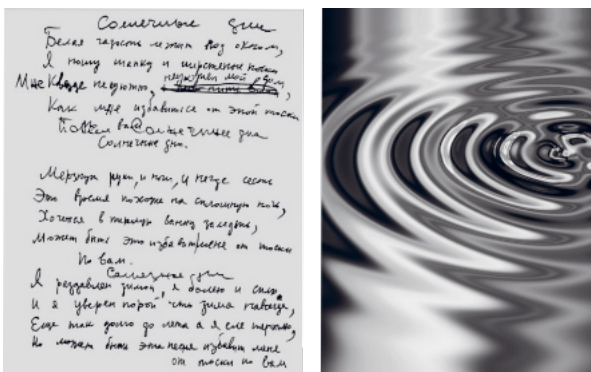 Солнечные дни
Белая гадость лежит под окном,
Я ношу шапку и шерстяные носки
неуютен мой дом,
Мне везде неуютно,
Как мне избавиться от этой тоски
По вам Солнечные дни
Солнечные дни.
Мерзнут руки, и ноги, и негде сесть
Это время похоже на сплошную ночь,
Хочется в теплую ванну залезть,
Может быть это избавит меня от тоски
По вам.
Солнечные дни
Я раздавлен зимой, я болею и сплю,
И я уверен порой, что зима навсегда,
Еще так долго до лета а я еле терплю,
Но может быть эта песня избавит меня
от тоски по вам